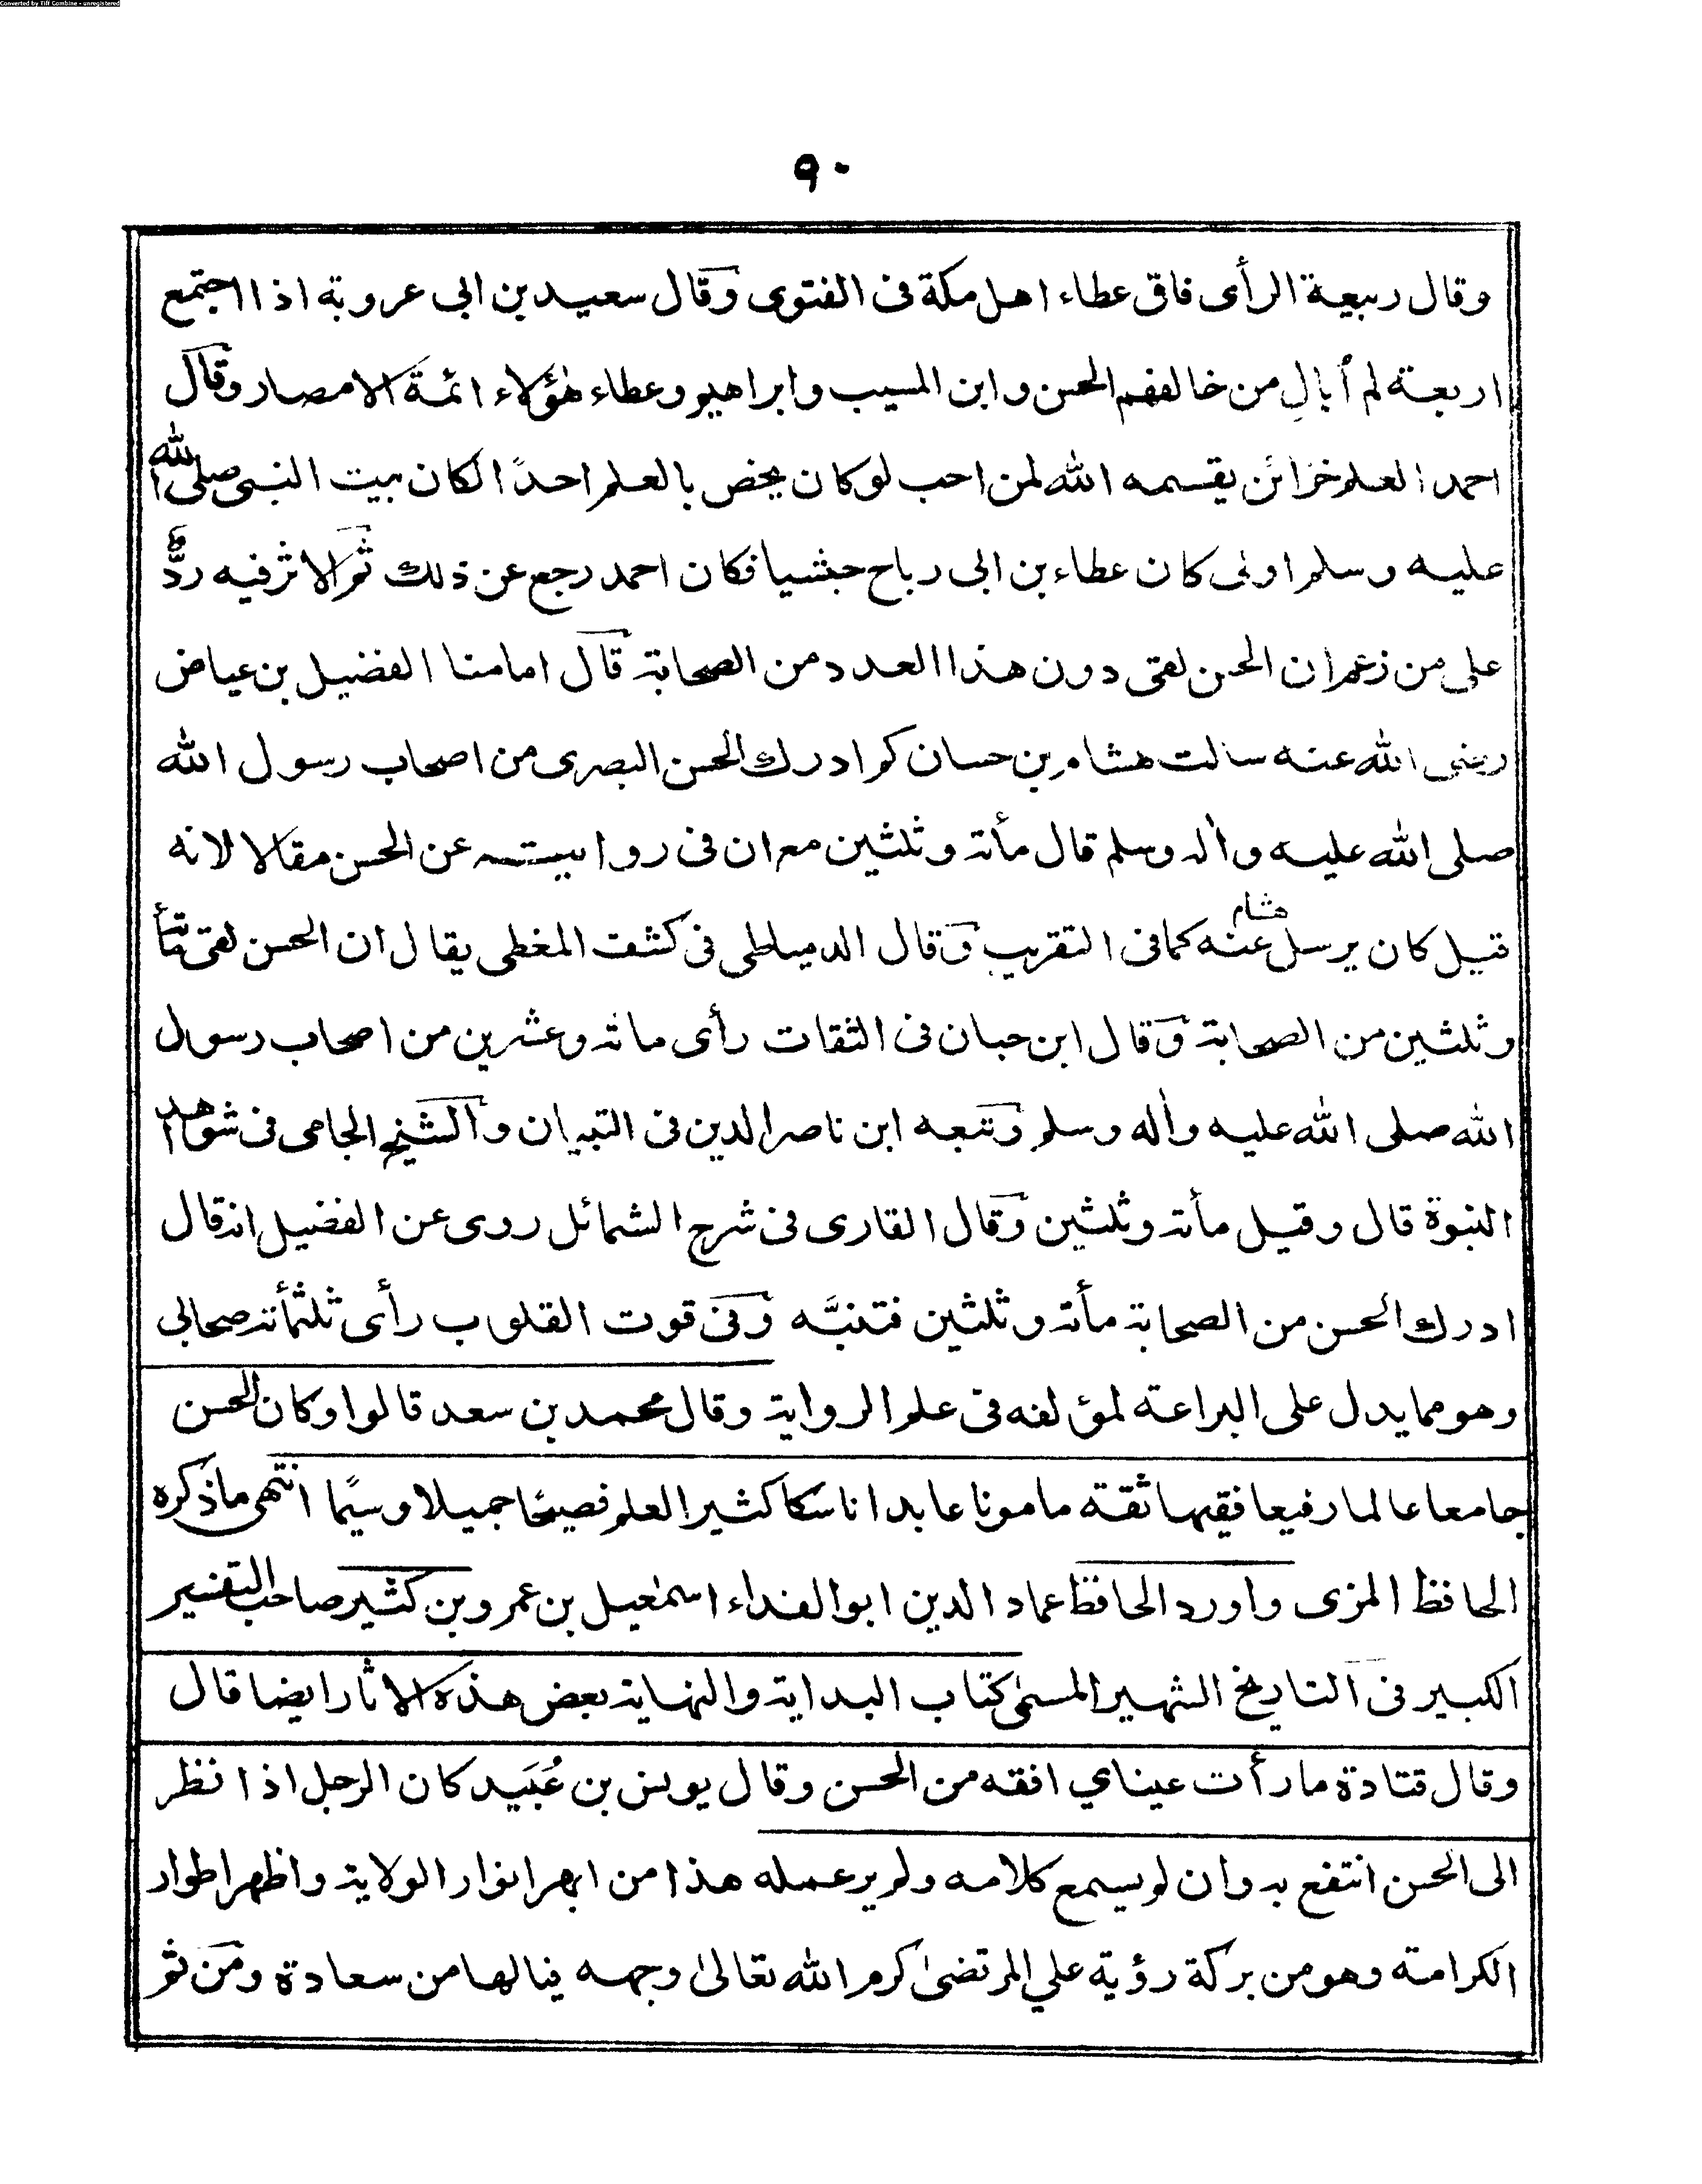 Converted by Tiff Combine - unregistered
٩٠
وقال ربيعة الرأى فاق عطاء اهل مكة فى الفتوى وقال سعيد بن ابى عروبة اذا اجتمع
اربعة لم أبالِ من خالفهم الحسن وابن المسيب وابراهيم وعطاء هٰؤلاء ائمة الامصار وقال
احمد العلم خزائن يقسمه الله لمن احب لو كان يخص بالعلم احدًا لكان بيت النبى صلى الله
عليه وسلم اولى كان عطاء بن ابى رباح حبشيا فكان احمد رجع عن ذلك ثم الاثر فيه ردٌّ
على من زعم ان الحسن لقى دون هذا العدد من الصحابة قال امامنا الفضيل بن عياض
رضى الله عنه سالت هشام بن حسان كم ادرك الحسن البصرى من اصحاب رسول الله
صلى الله عليه وأله وسلم قال مأته وثلثين مع ان فى روايته عن الحسن مقالا لانه
قيل كان يرسل عنه هشام كما فى التقريب وقال الدمياطى فى كشف المغطى يقال ان الحسن لقى مأته
وثلثين من الصحابة وقال ابن حبان فى الثقات رأى مائه وعشرين من اصحاب رسول
الله صلى الله عليه وأله وسلم وتبعه ابن ناصر الدين فى التبيان والشيخ الجامى فى شواهد
النبوة قال وقيل مأته وثلثين وقال القارى فى شرح الشمائل روى عن الفضيل انه قال
ادرك الحسن من الصحابة مأته وثلثين فتنبَّه وفى قوت القلوب رأى ثلثمأته صحابى
وهو مما يدل على البراعة لمؤلفه فى علم الرواية وقال محمد بن سعد قالوا وكان الحسن
جامعا عالما رفيعا فقيها ثقة مامونا عابدا ناسكا كثير العلم فصيحًا جميلا وسيمًا انتهى ما ذكره
الحافظ المزى واورد الحافظ عماد الدين ابو الفداء اسمٰعيل بن عمرو بن كثير صاحب التفسير
الكبير فى التاريخ الشهير المسمىٰ كتاب البداية والنهاية بعض هذه الاثار ايضا قال
وقال قتادة ما رأت عيناي افقه من الحسن وقال يونس بن عُبَيد كان الرجل اذا نظر
الى الحسن انتفع به وان لم يسمع كلامه ولم ير عمله هذا من ابهر انوار الولاية واظهر اطوار
الكرامة وهو من بركة رؤية علي المرتضىٰ كرم الله تعالىٰ وجهه فيالها من سعادة ومن ثم